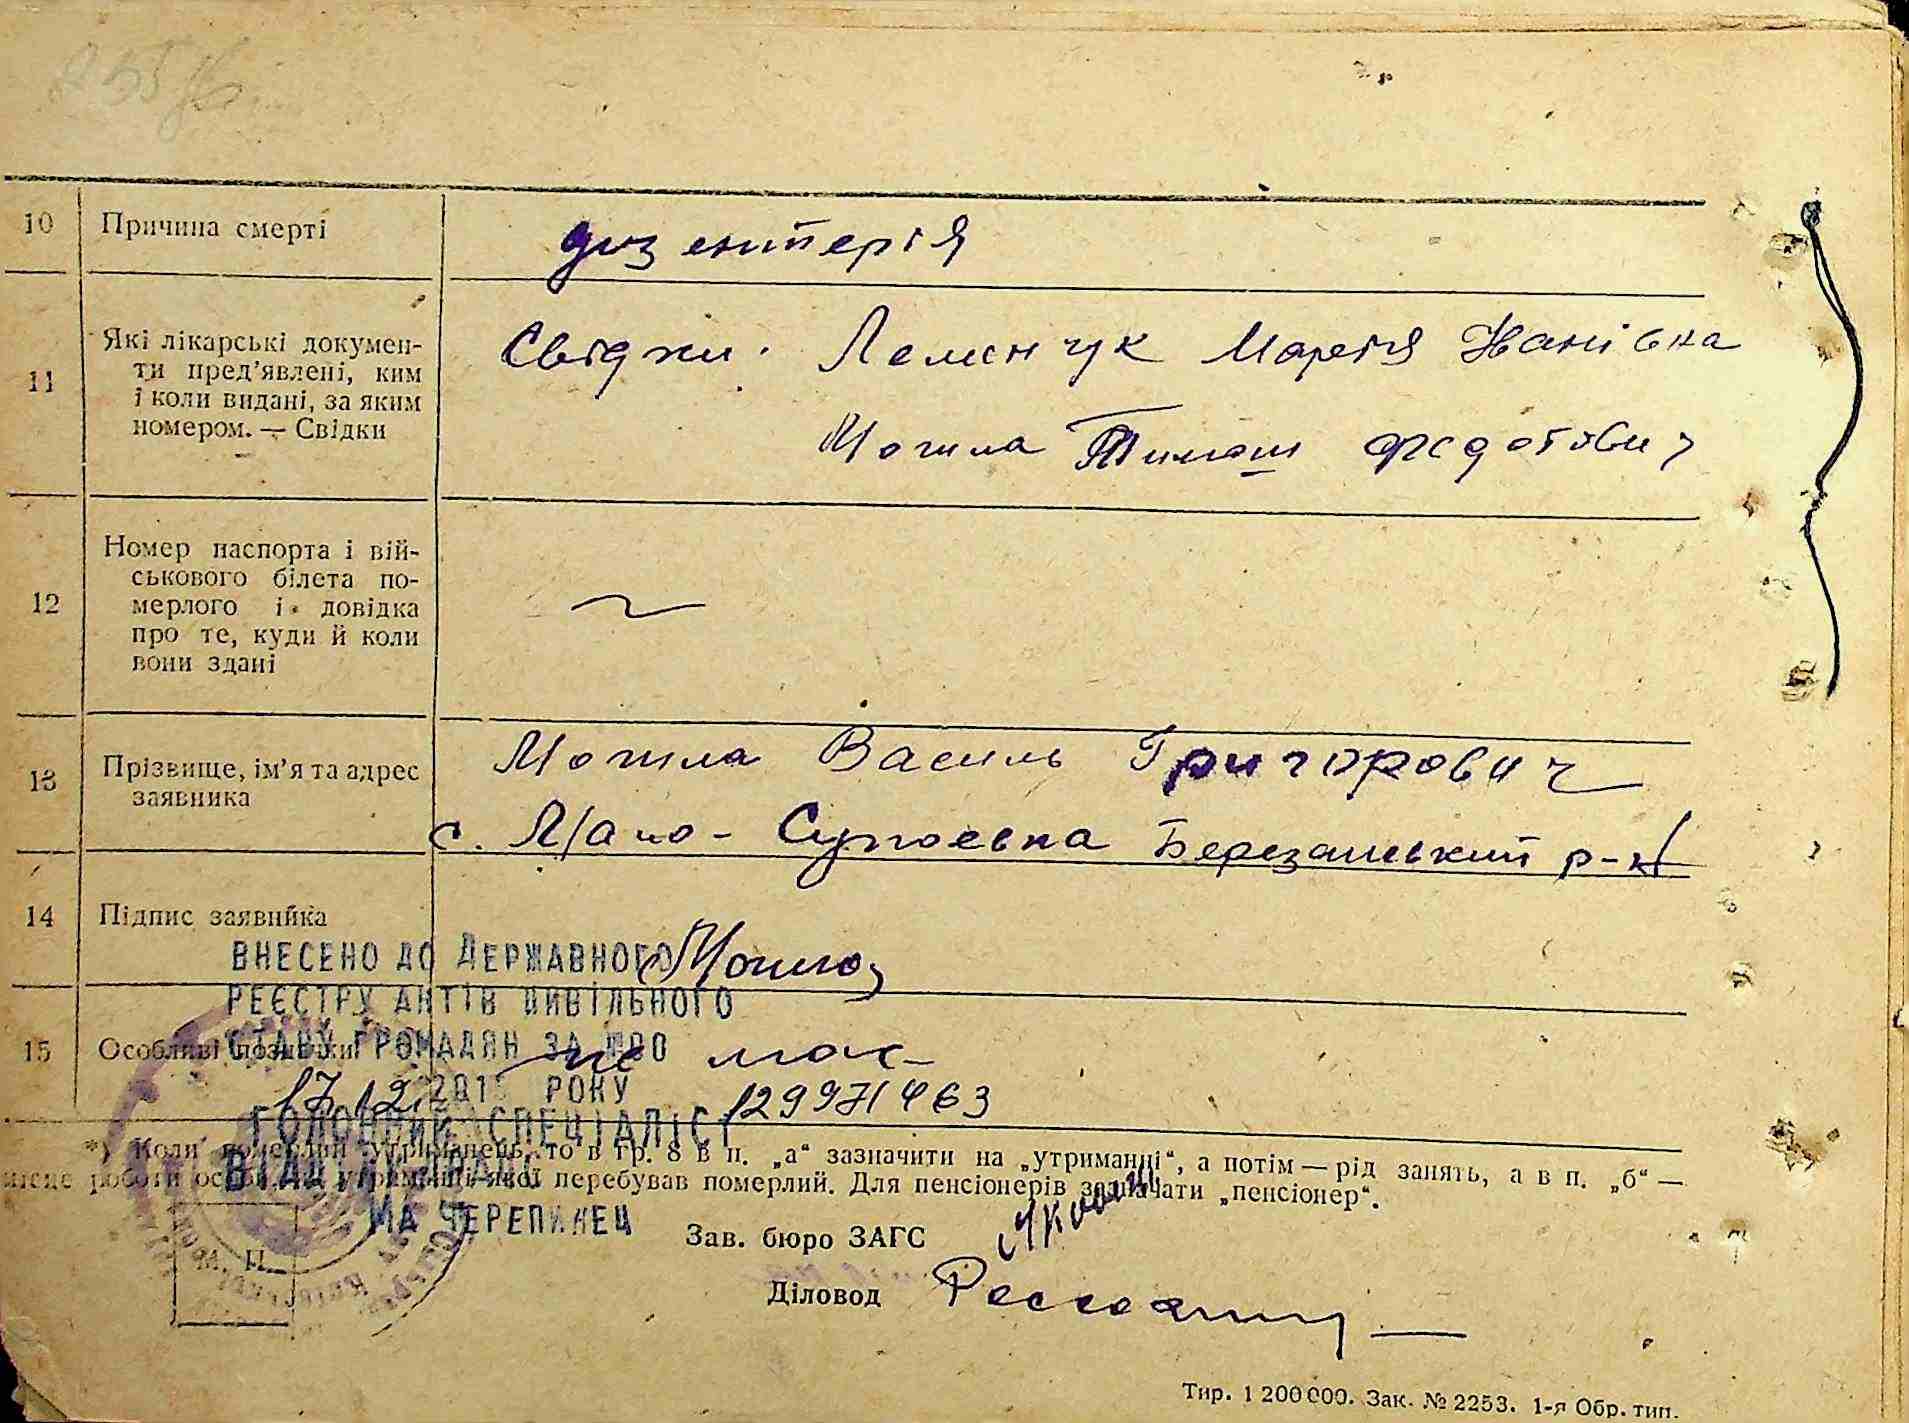 10 Причина смерті дизентерія
11 Які лікарські докумен-
ти пред’явлені, ким
і коли видані, за яким
номером. — Свідки
Свідки. Марія Іванівна
Могила Тимош Федотович
12 Номер паспорта і вій-
ськового білета по-
мерлого і довідка
про те, куди й коли
вони здані
13 Прізвище, ім’я та адрес
заявника
Могила Василь Григорович
с. Мало-Супоевка Березанський р-н
14 Підпис заявника
ВНЕСЕНО ДО ДЕРЖАВНОГО
РЕЄСТРУ АКТІВ ЦИВІЛЬНОГО
15 Особливі позначки не має
СТАНУ ГРОМАДЯН ЗА №00
17.12.201 РОКУ 12997463
ГОЛОВНИЙ СПЕЦІАЛІСТ
*) Коли померлий утриманець, то в гр. 8 в п. „а“ зазначити на „утриманці“, а потім — рід занять, а в п. „б“ —
місце роботи особи, на утриманні якої перебував померлий. Для пенсіонерів зазначати „пенсіонер“.
МА ЧЕРЕПИНЕЦ
Зав. бюро ЗАГС
М. П.
Діловод
Тир. 1 200 000. Зак. № 2253. 1-я Обр. тип.